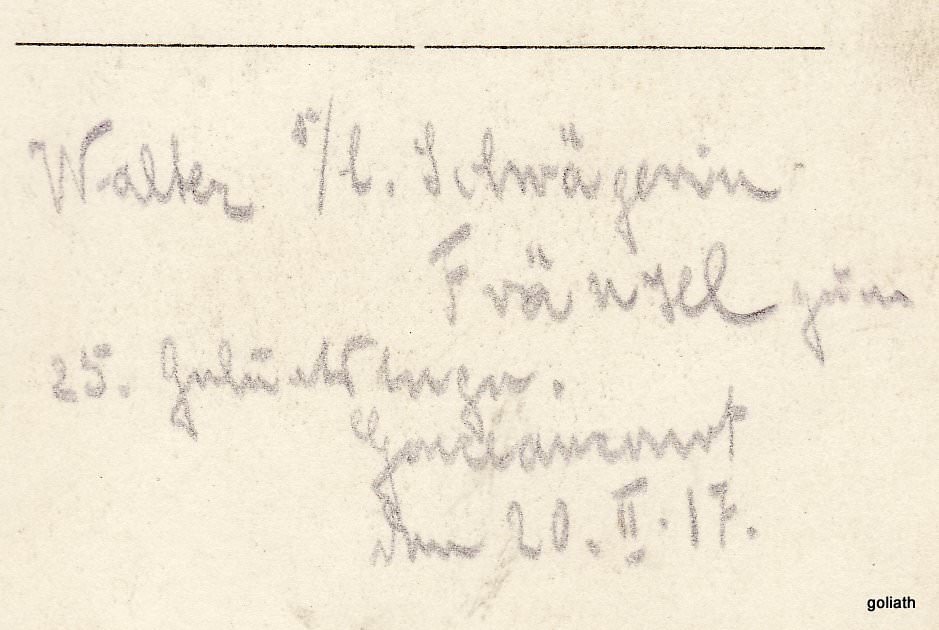 Walter s/l. Schwägerin
Fränzel zum
25. Geburtstage.
den 20.II.17.
goliath